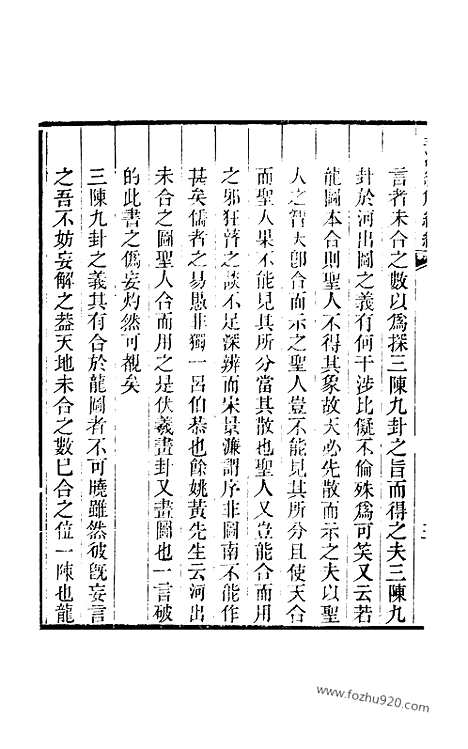 言者未合之數以爲探三陳九卦之旨而得之夫三陳九
卦於河出圖之義有何干涉比儗不倫殊爲可笑又云若
龍圖本合則聖人不得其象故天必先散而示之夫以聖
人之智天卽合而示之聖人豈不能見其所分且使天合
而聖人果不能見其所分當其散也聖人又豈能合而用
之邪狂瞽之談不足深辨而宋景濂謂序非圖南不能作
甚矣儒者之易欺非獨一呂伯恭也餘姚黃先生云河出
未合之圖聖人合而用之是伏羲畫卦又畫圖也一言破
的此書之僞妄灼然可覩矣
三陳九卦之義其有合於龍圖者不可曉雖然彼旣妄言
之吾不妨妄解之葢天地未合之數巳合之位一陳也龍
www.fozhu920.com